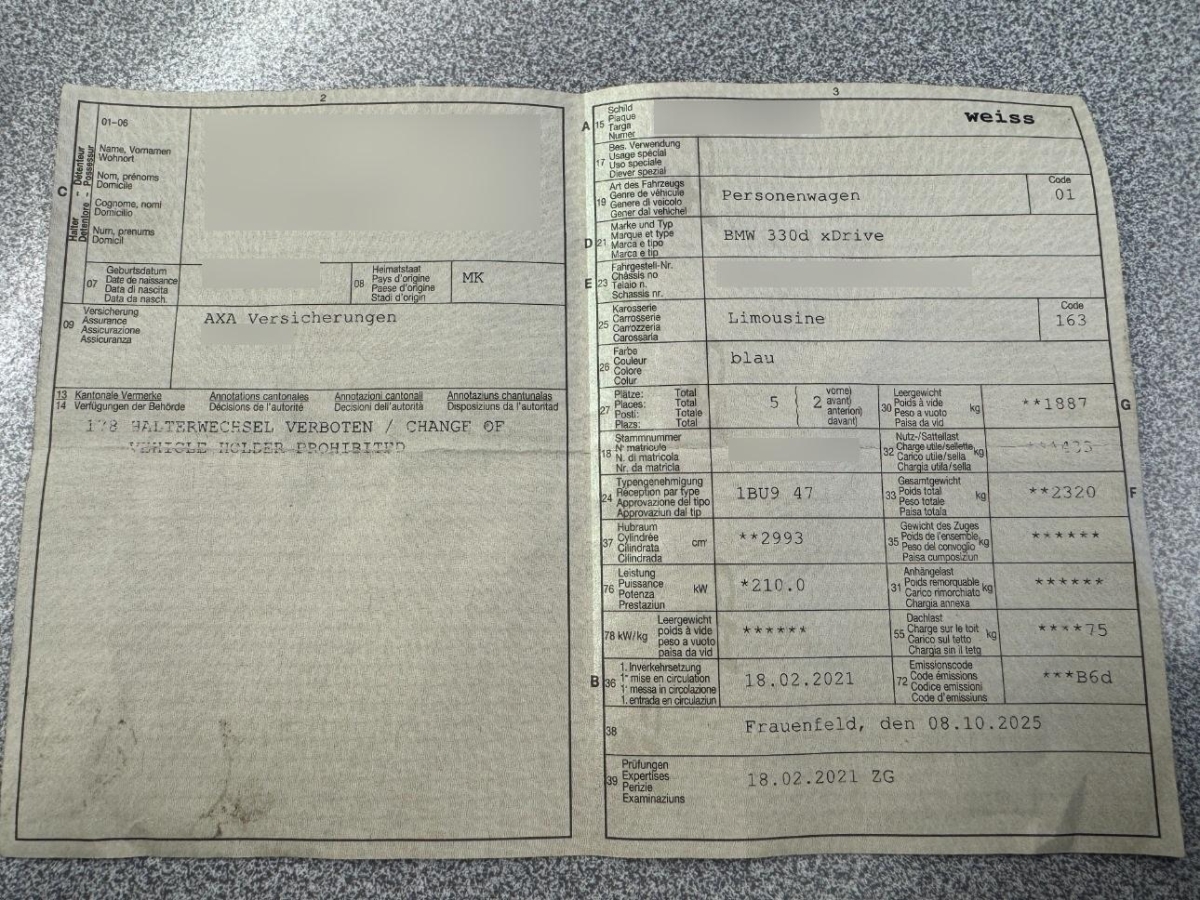 2
01-06
Halter - Détenteur
Detentore - Possessur
C
Name, Vornamen
Wohnort
Nom, prénoms
Domicile
Cognome, nomi
Domicilio
Num, prenums
Domicil
07
Geburtsdatum
Date de naissance
Data di nascita
Data da nasch.
08
Heimatstaat
Pays d'origine
Paese d'origine
Stadi d'origin
MK
09
Versicherung
Assurance
Assicurazione
Assicuranza
AXA Versicherungen
13 Kantonale Vermerke Annotations cantonales Annotazioni cantonali Annotaziuns chantunalas
14 Verfügungen der Behörde Décisions de l'autorité Decisioni dell'autorità Disposiziuns da l'autoritad
178 HALTERWECHSEL VERBOTEN / CHANGE OF
VEHICLE HOLDER PROHIBITED
3
A
15
Schild
Plaque
Targa
Numer
weiss
17
Bes. Verwendung
Usage spécial
Uso speciale
Diever spezial
19
Art des Fahrzeugs
Genre de véhicule
Genere di veicolo
Gener dal vehichel
Personenwagen
Code
01
D
21
Marke und Typ
Marque et type
Marca e tipo
Marca e tip
BMW 330d xDrive
E
23
Fahrgestell-Nr.
Châssis no
Telaio n.
Schassis nr.
25
Karosserie
Carrosserie
Carrozzeria
Carossaria
Limousine
Code
163
26
Farbe
Couleur
Colore
Colur
blau
27
Plätze: Total
Places: Total
Posti: Totale
Plazs: Total
5 { 2
vorne)
avant)
anteriori)
davant)
30
Leergewicht
Poids à vide
Peso a vuoto
Paisa da vid
kg
**1887
G
18
Stammnummer
N° matricule
N. di matricola
Nr. da matricla
32
Nutz-/Sattellast
Charge utile/sellette
Carico utile/sella
Chargia utila/sella
kg
24
Typengenehmigung
Réception par type
Approvazione del tipo
Approvaziun dal tip
1BU9 47
33
Gesamtgewicht
Poids total
Peso totale
Paisa totala
kg
**2320
F
37
Hubraum
Cylindrée
Cilindrata
Cilindrada
cm³
**2993
35
Gewicht des Zuges
Poids de l'ensemble
Peso del convoglio
Paisa cumposiziun
kg
******
76
Leistung
Puissance
Potenza
Prestaziun
kW
*210.0
31
Anhängelast
Poids remorquable
Carico rimorchiato
Chargia annexa
kg
******
78 kW/kg
Leergewicht
poids à vide
peso a vuoto
paisa da vid
******
55
Dachlast
Charge sur le toit
Carico sul tetto
Chargia sin il tetg
kg
****75
B
36
1. Inverkehrsetzung
1re mise en circulation
1a messa in circolazione
1. entrada en circulaziun
18.02.2021
72
Emissionscode
Code émissions
Codice emissioni
Code d'emissiuns
***B6d
38
Frauenfeld, den 08.10.2025
39
Prüfungen
Expertises
Perizie
Examinaziuns
18.02.2021 ZG